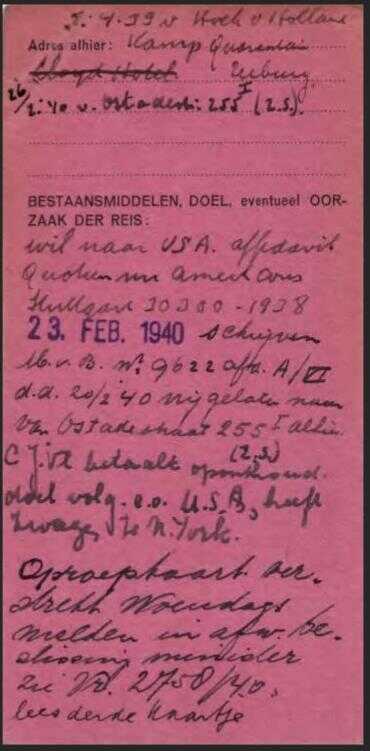 5.4.39 v Hoek v Holland
Adres alhier: Kamp Quarantain
Lloyd Hotel Zeeburg.
26/2.40 v. Ostadestr. 255 I (z.S.).
BESTAANSMIDDELEN, DOEL, eventueel OOR-
ZAAK DER REIS:
wil naar USA. affidavit
Quotum Amer. cons
Stuttgart 30300-1938
23. FEB. 1940 schrijven
M.v.B. No. 9622 afd. A/VI
d.d. 20/2 '40 vrijgelaten naar
Van Ostadestraat 255 I alhier.
(z.S.)
C.J.Vl betaalt oponthoud.
doel volg. e.o. U.S.A, heeft
zwager te N.York.
Oproepkaart ver-
strekt Woensdags
melden in afw. be-
slissing minister
zie Vd. 2758/40,
lees derde kaartje